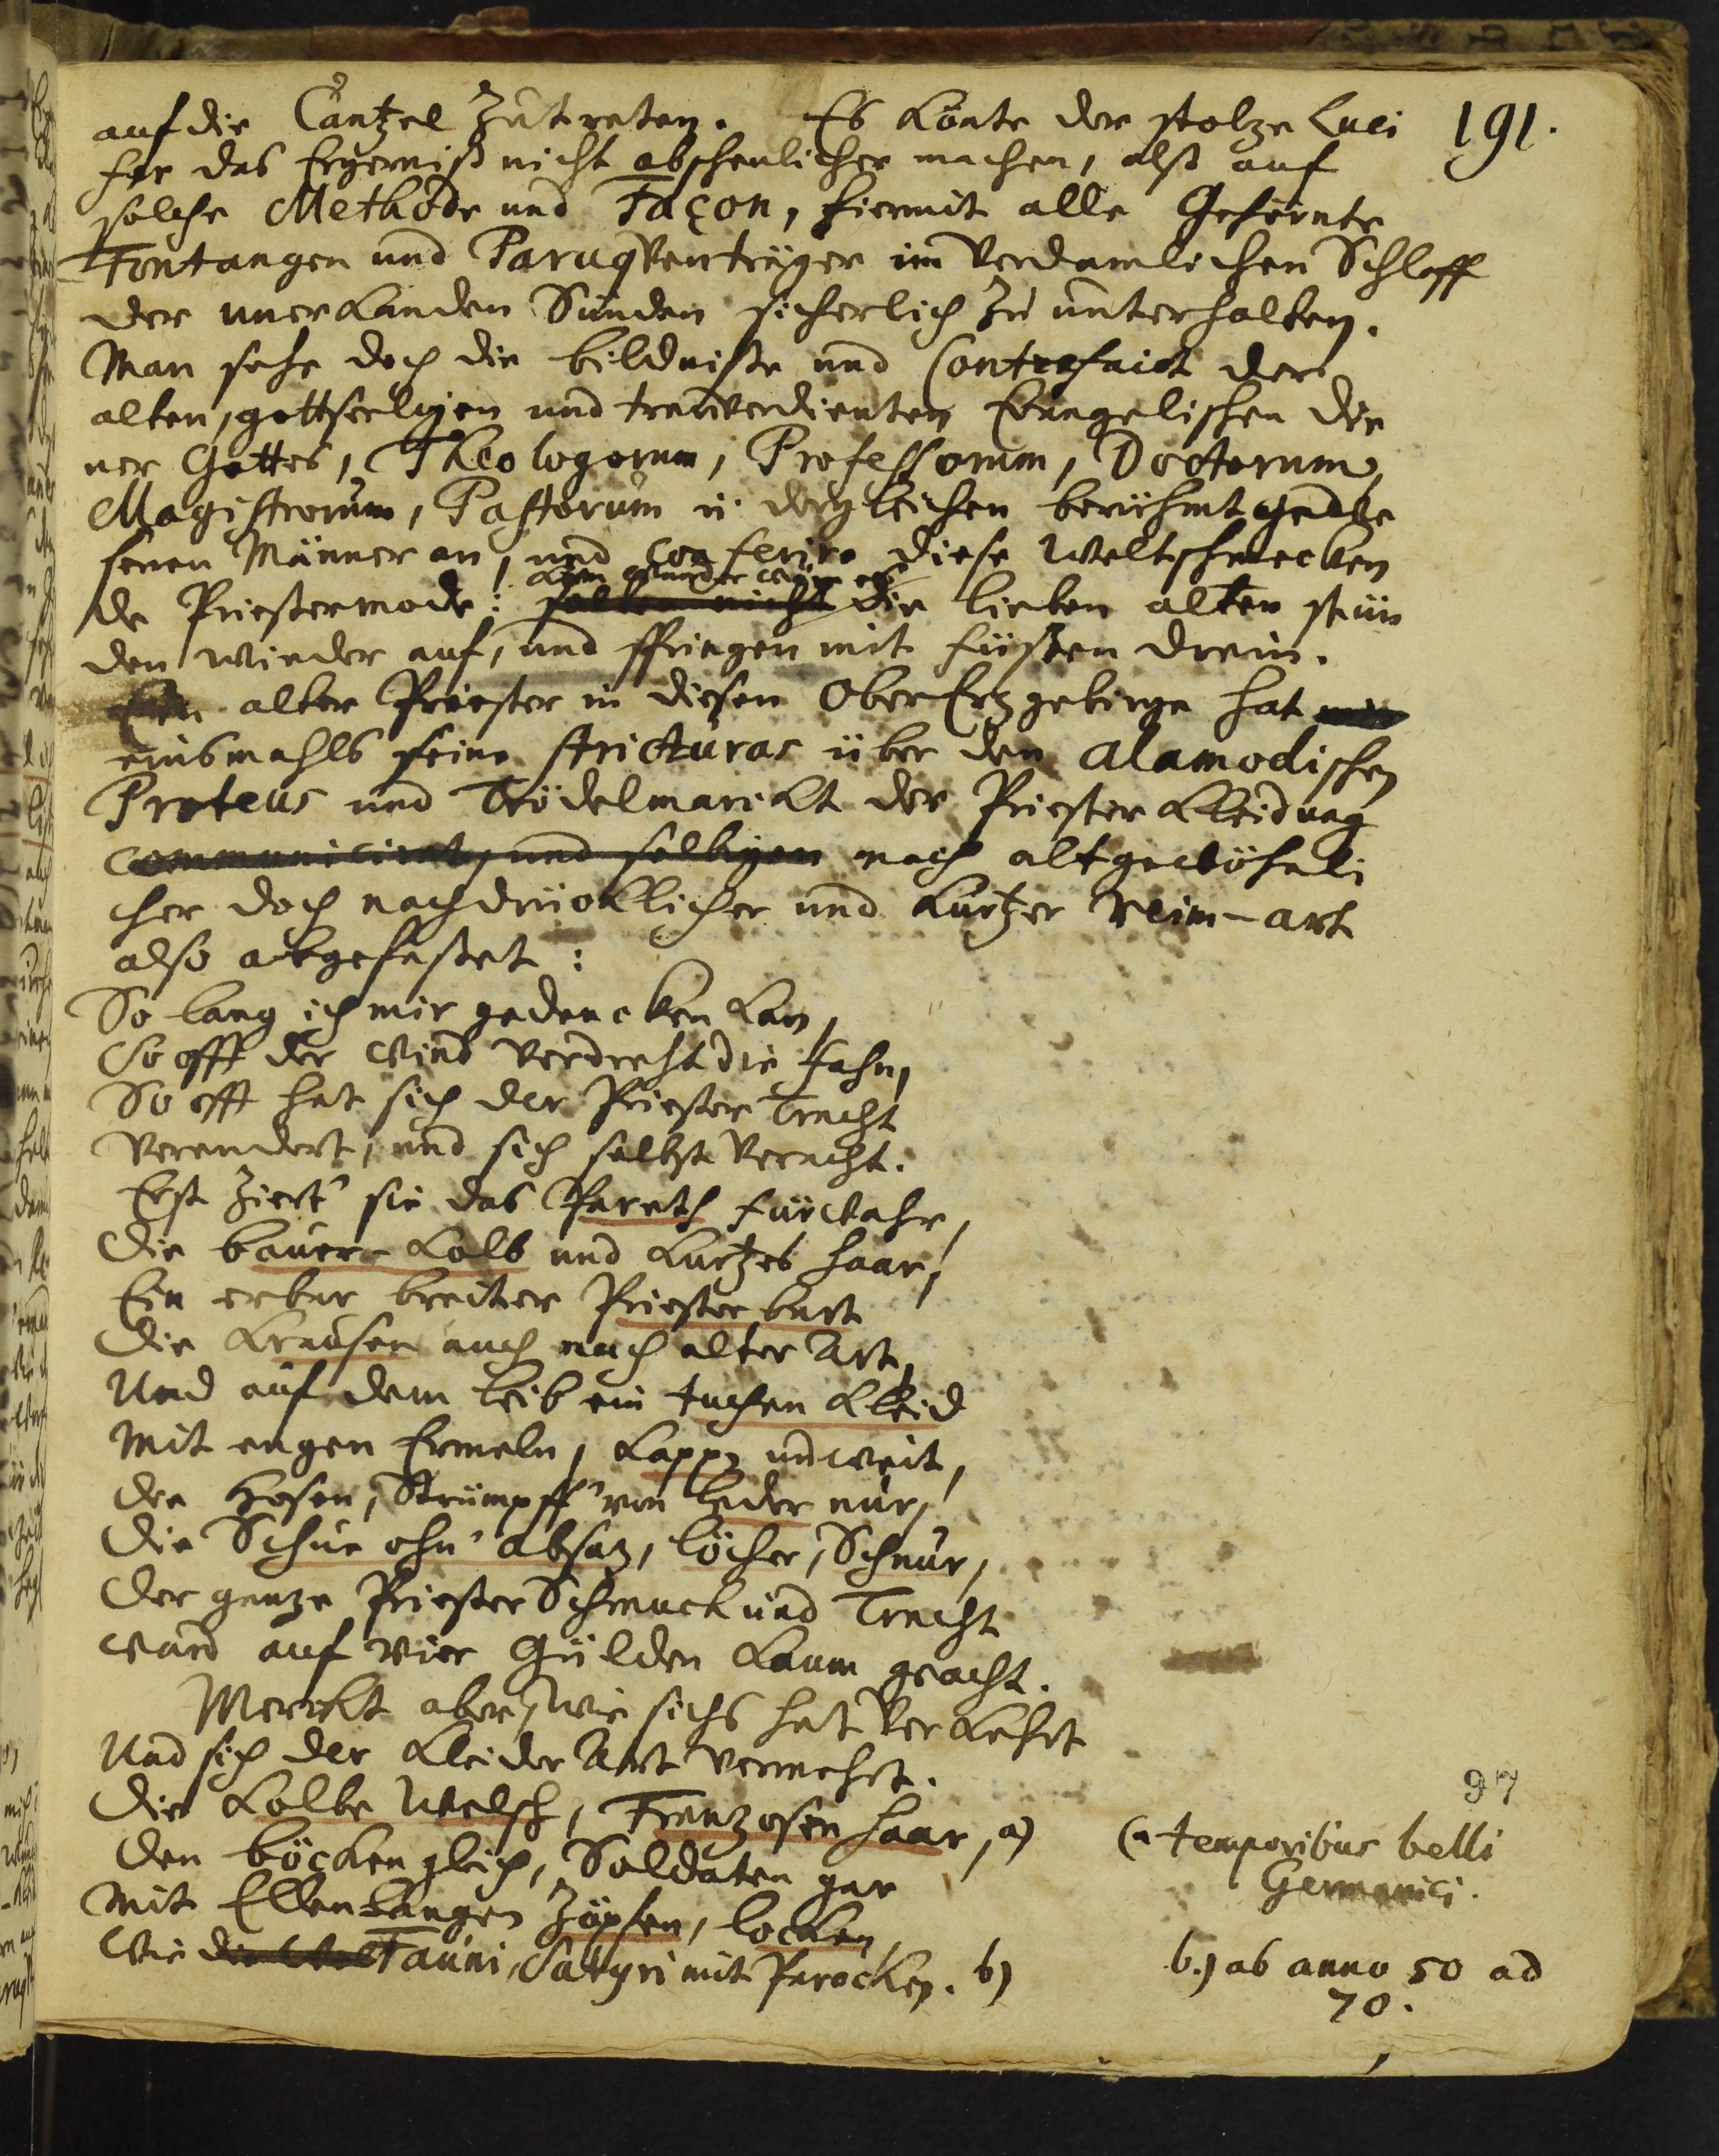 191.
auf die Cantzel zutreten. Es könte der stolze Luci
fer das Ergerniß nicht abscheulicher machen, alß auf
solche Methode und Façon, hiermit alle Gehörnte
Fontangen und Paruqventräger im verdamlichen Schlaff
der unerkanden Sünden sicherlich zu unterhalten.
Man sehe doch die bildniße und Contrefaict der
alten, gottseeligen und treuverdienten Evangelischen Die
ner Gottes, Theologorum, Professorum, Doctorum,
Magistrorum, Pastorum u. dergleichen berühmt gewe
senen Männer an, und conferire diese Weltschmecken
de Priestermode: kein wunder wäre es
solten nicht die lieben alten stün
den wieder auf, und sprüngen mit füßen drein.
Ein alter Priester in diesen OberErzgebirge hat mir
einsmahls seine stricturas über den alamodischen
Proteus und Trödelmarckt der Priester Kleidung
communiciret, und selbigen nach altgewöhnli
cher doch nachdrücklicher und kurtzer Reim-art
also abgefaßet:
So lang ich mir gedencken kan,
So offt der Wind verdreht die Fahn,
So offt hat sich der Priester Tracht
verendert, und sich selbst veracht.
Erst ziert' sie das Pareth fürwahr,
Die bauer-Kolb und kurtzes Haar,
Ein erbar breiter Priesterbart
Die Krausen auch nach alter Art,
Und auf dem Leib ein tuchen Kleid
Mit engen Ermeln, knapp und weit,
Die Hosen, Strümpff' von Leder nur,
Die Schue ohn' absaz, löcher, Schnur,
Der ganze Priester Schmuck und Tracht
ward auf vier Gülden kaum geacht.
Merckt aber, wie sichs hat verkehrt
Und sich der Kleider Art vermehrt.
Die Kolbe Welsch, Franzosen Haar, a)
Den böcken gleich, Soldaten gar
Mit Ellenlangen Zöpfen, locken,
Wie die Fauni, Satyri mit Parocken. b)
97
(a temporibus belli
Germanici.
b.) ab anno 50 ad
70.